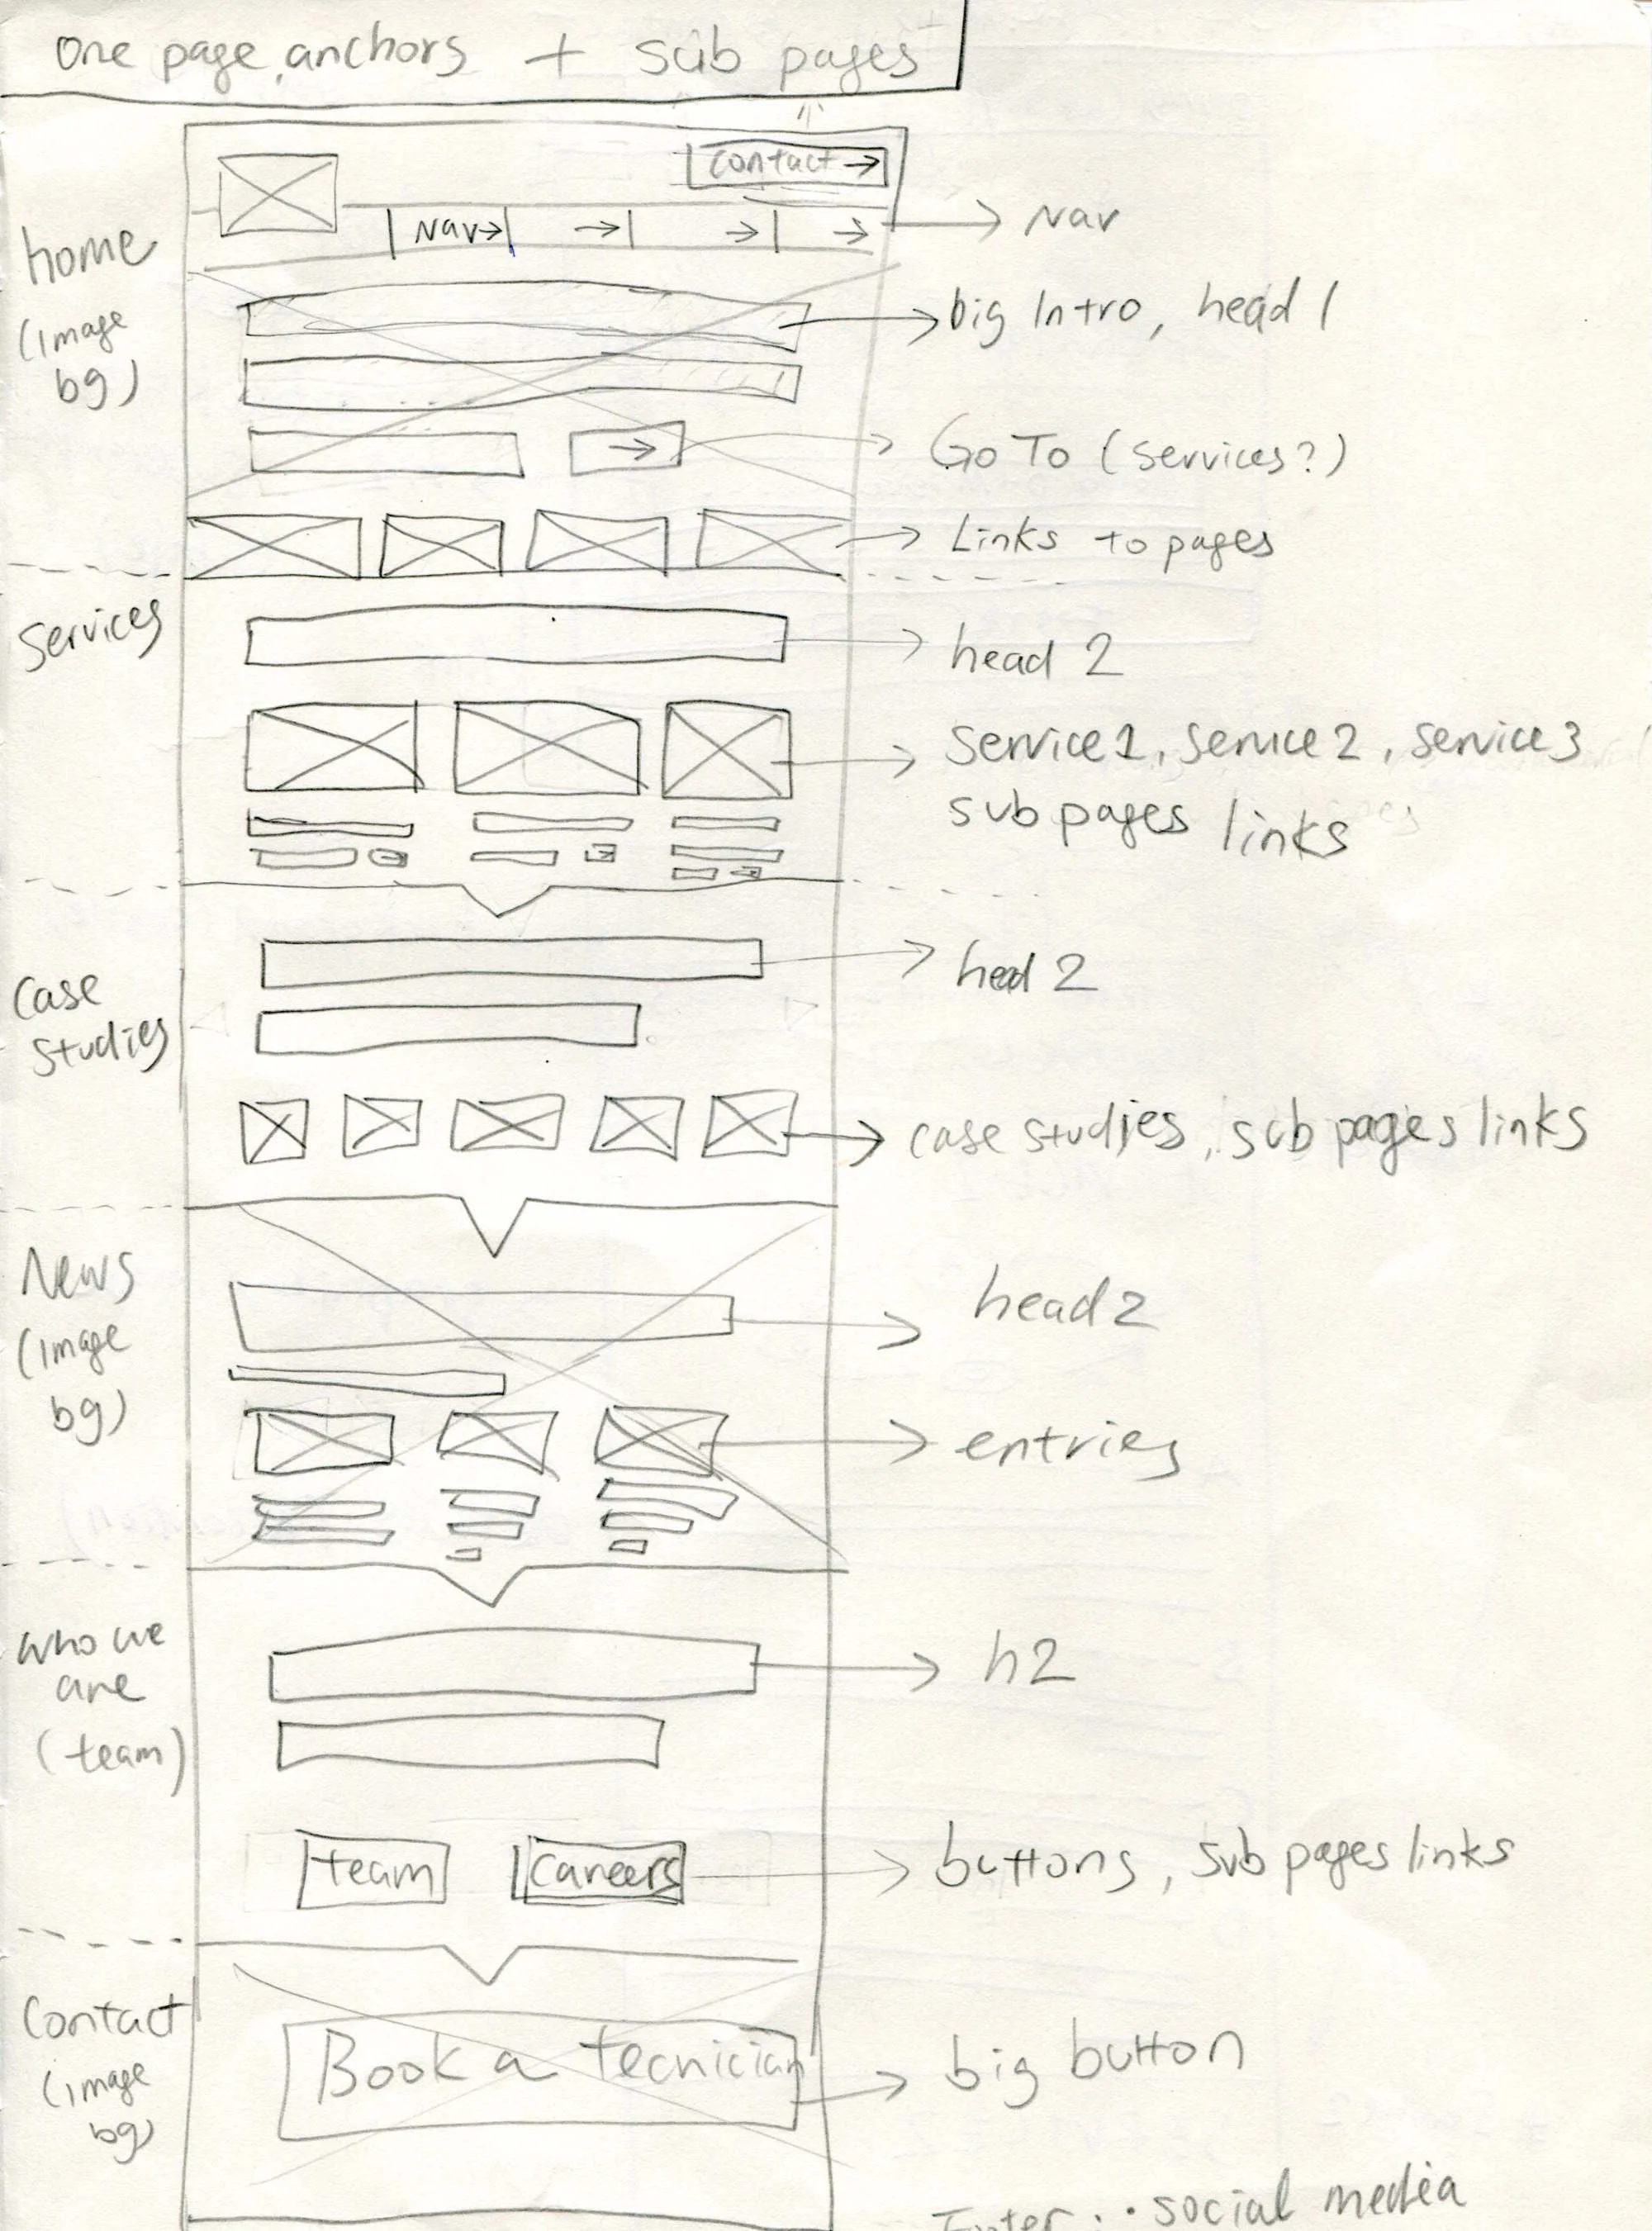 one page, anchors + sub pages
contact →
Nav →
→ → →
→ Nav
home
(image
bg)
→ big Intro, head 1
→
→ Go To (services?)
→ Links to pages
Services
→ head 2
→ service 1, service 2, service 3
sub pages links
case
studies
→ head 2
→ case studies, sub pages links
News
(image
bg)
→ head 2
→ entries
who we
are
(team)
→ h2
team
careers
→ buttons, sub pages links
Contact
(image
bg)
Book a tecnician
→ big button
Footer : • social media